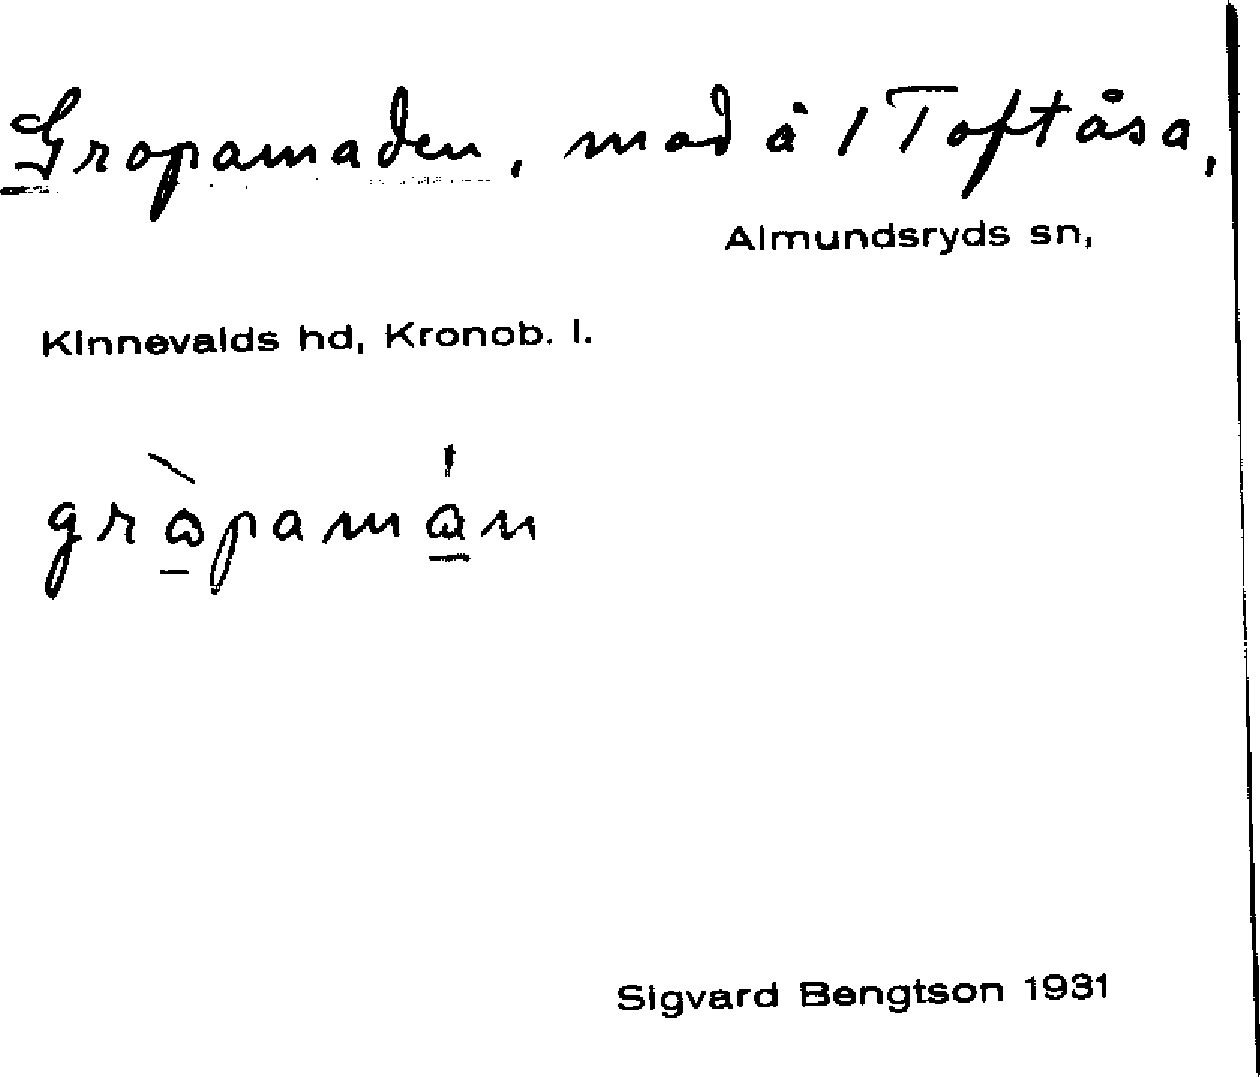 Gropamaden, mad å 1 Toftåsa,
Almundsryds sn,
Kinnevalds hd, Kronob. l.
gròpamán
Sigvard Bengtson 1931